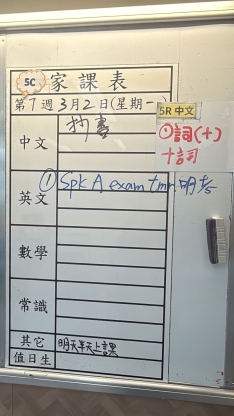 5C 家課表
第7週3月2日(星期一)
中文 抄書
5R 中文
①詞(十)
十詞
英文 ① Spk A exam tmr 明考
數學
常識
其它 明天半天上課
值日生